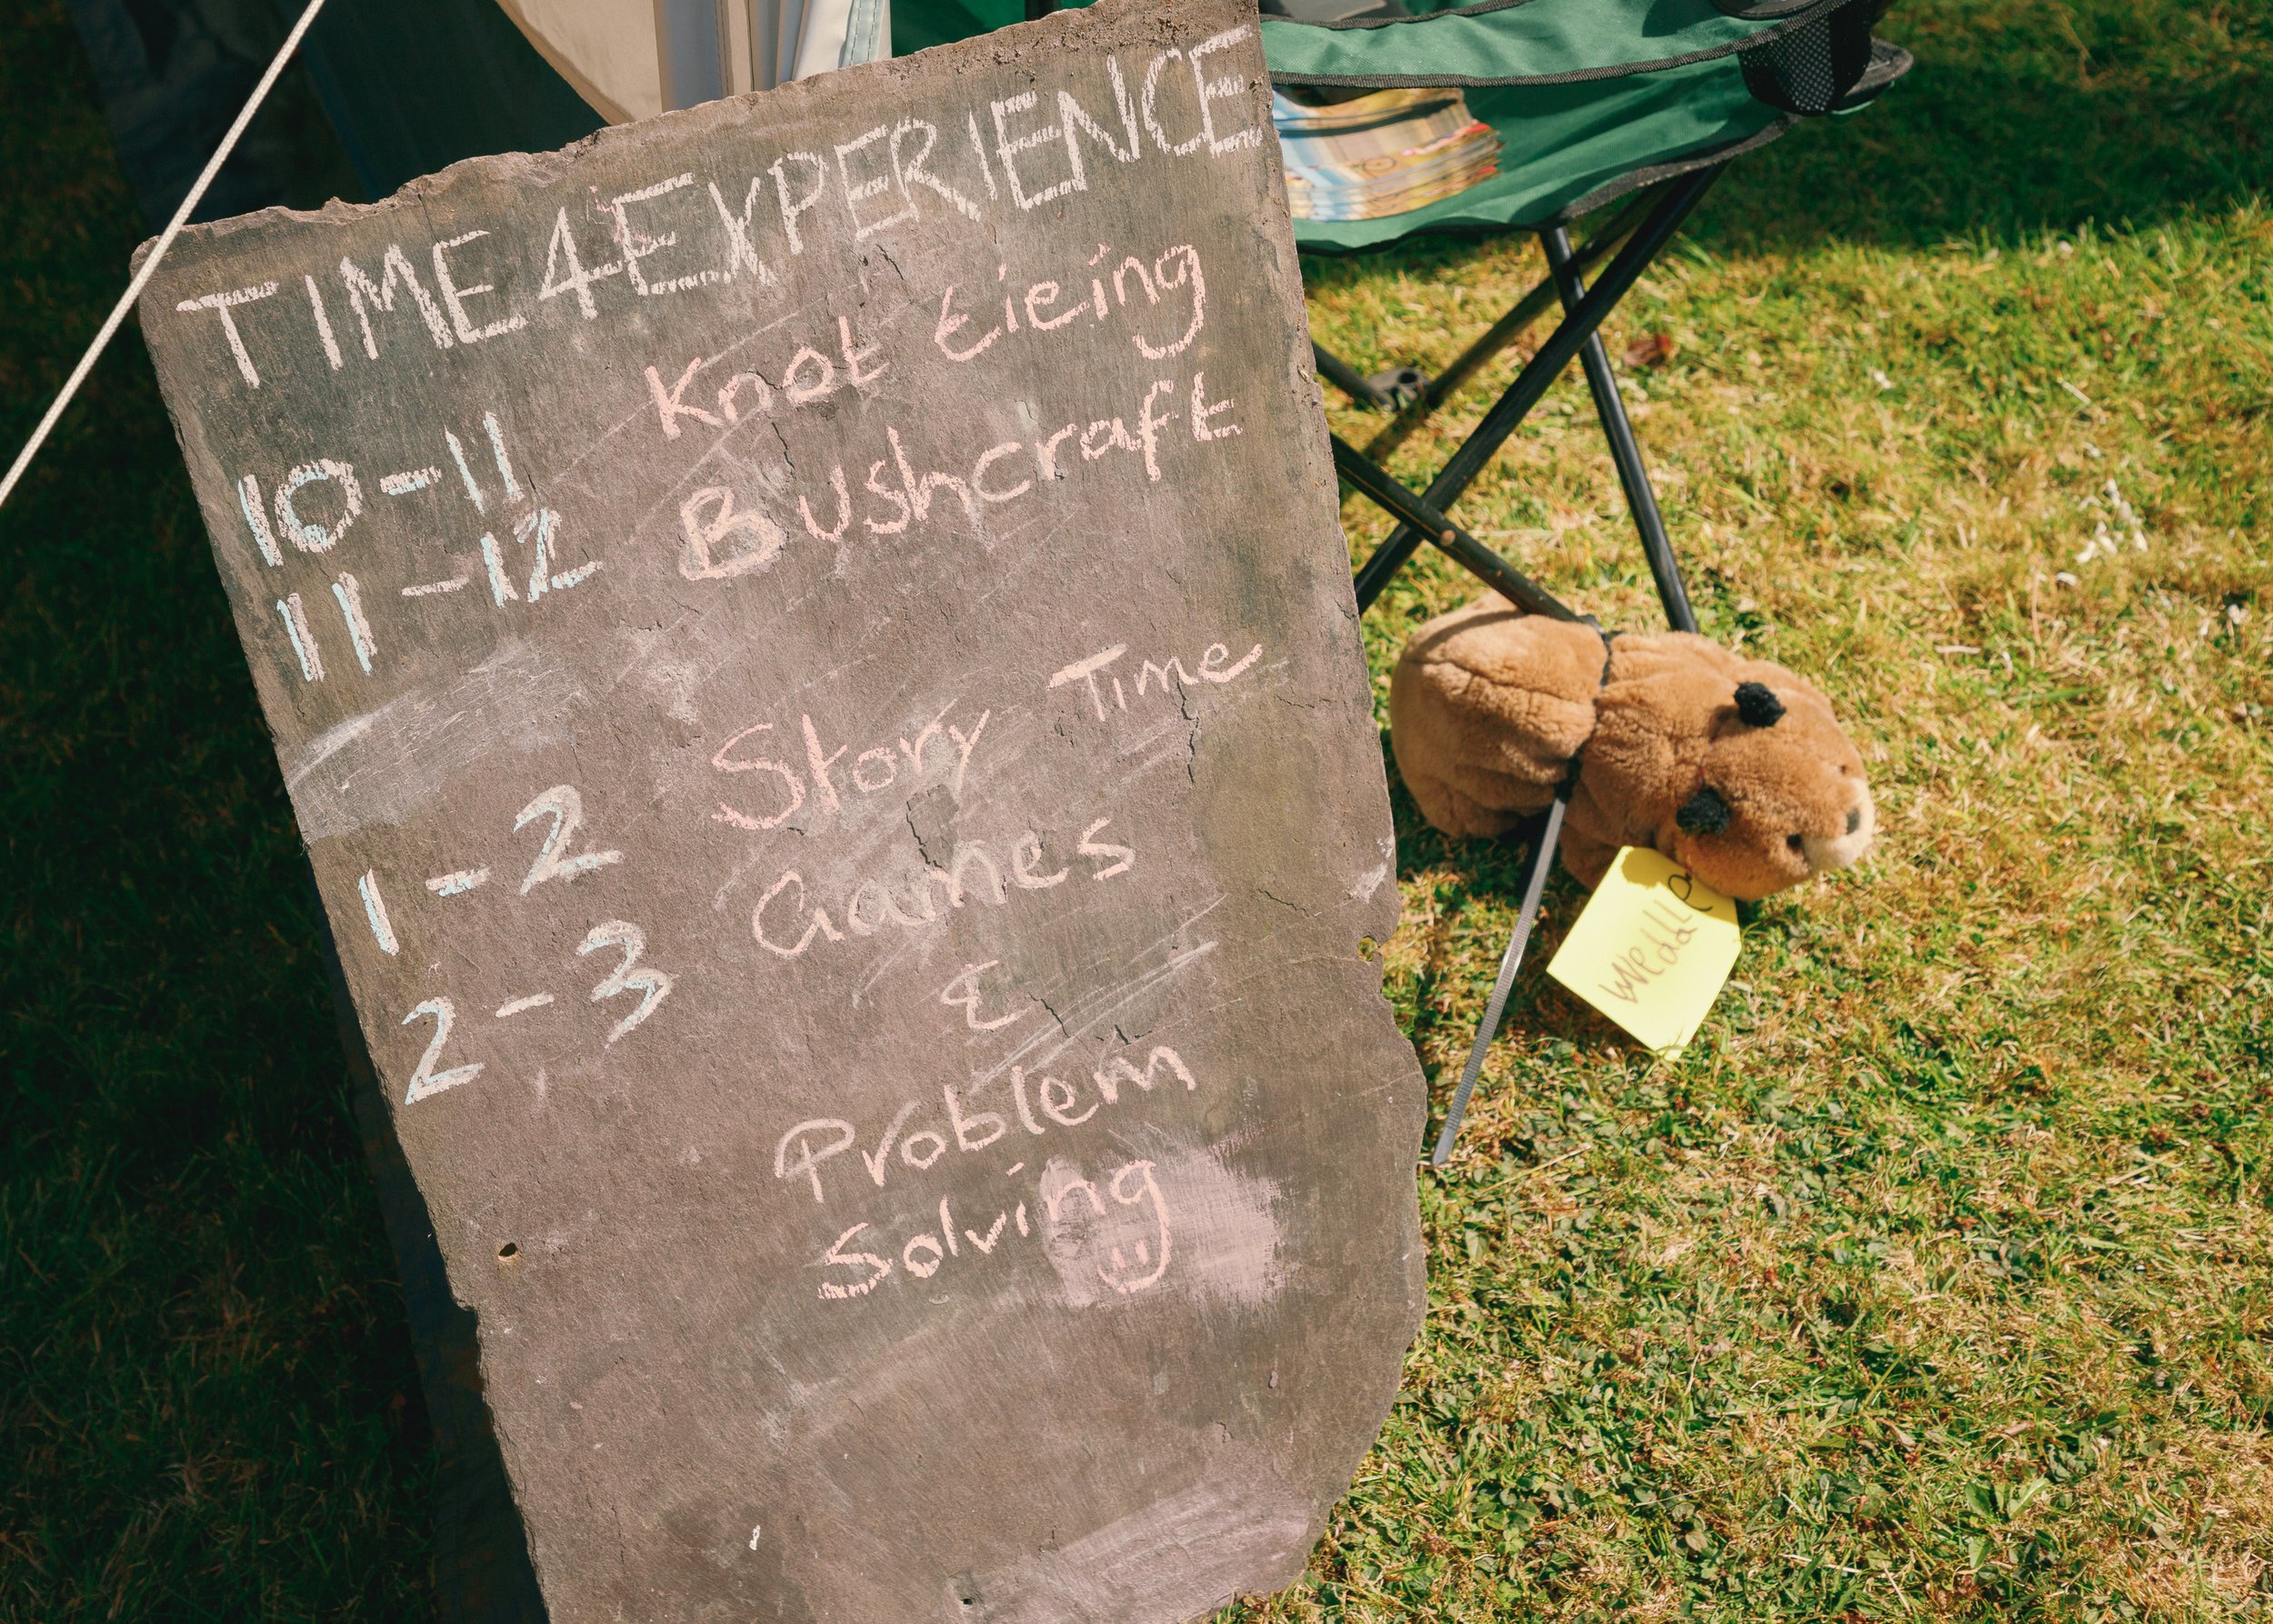 TIME 4 EXPERIENCE
10-11 Knot tieing
11-12 Bushcraft
1-2 Story Time
2-3 Games
&
Problem
Solving